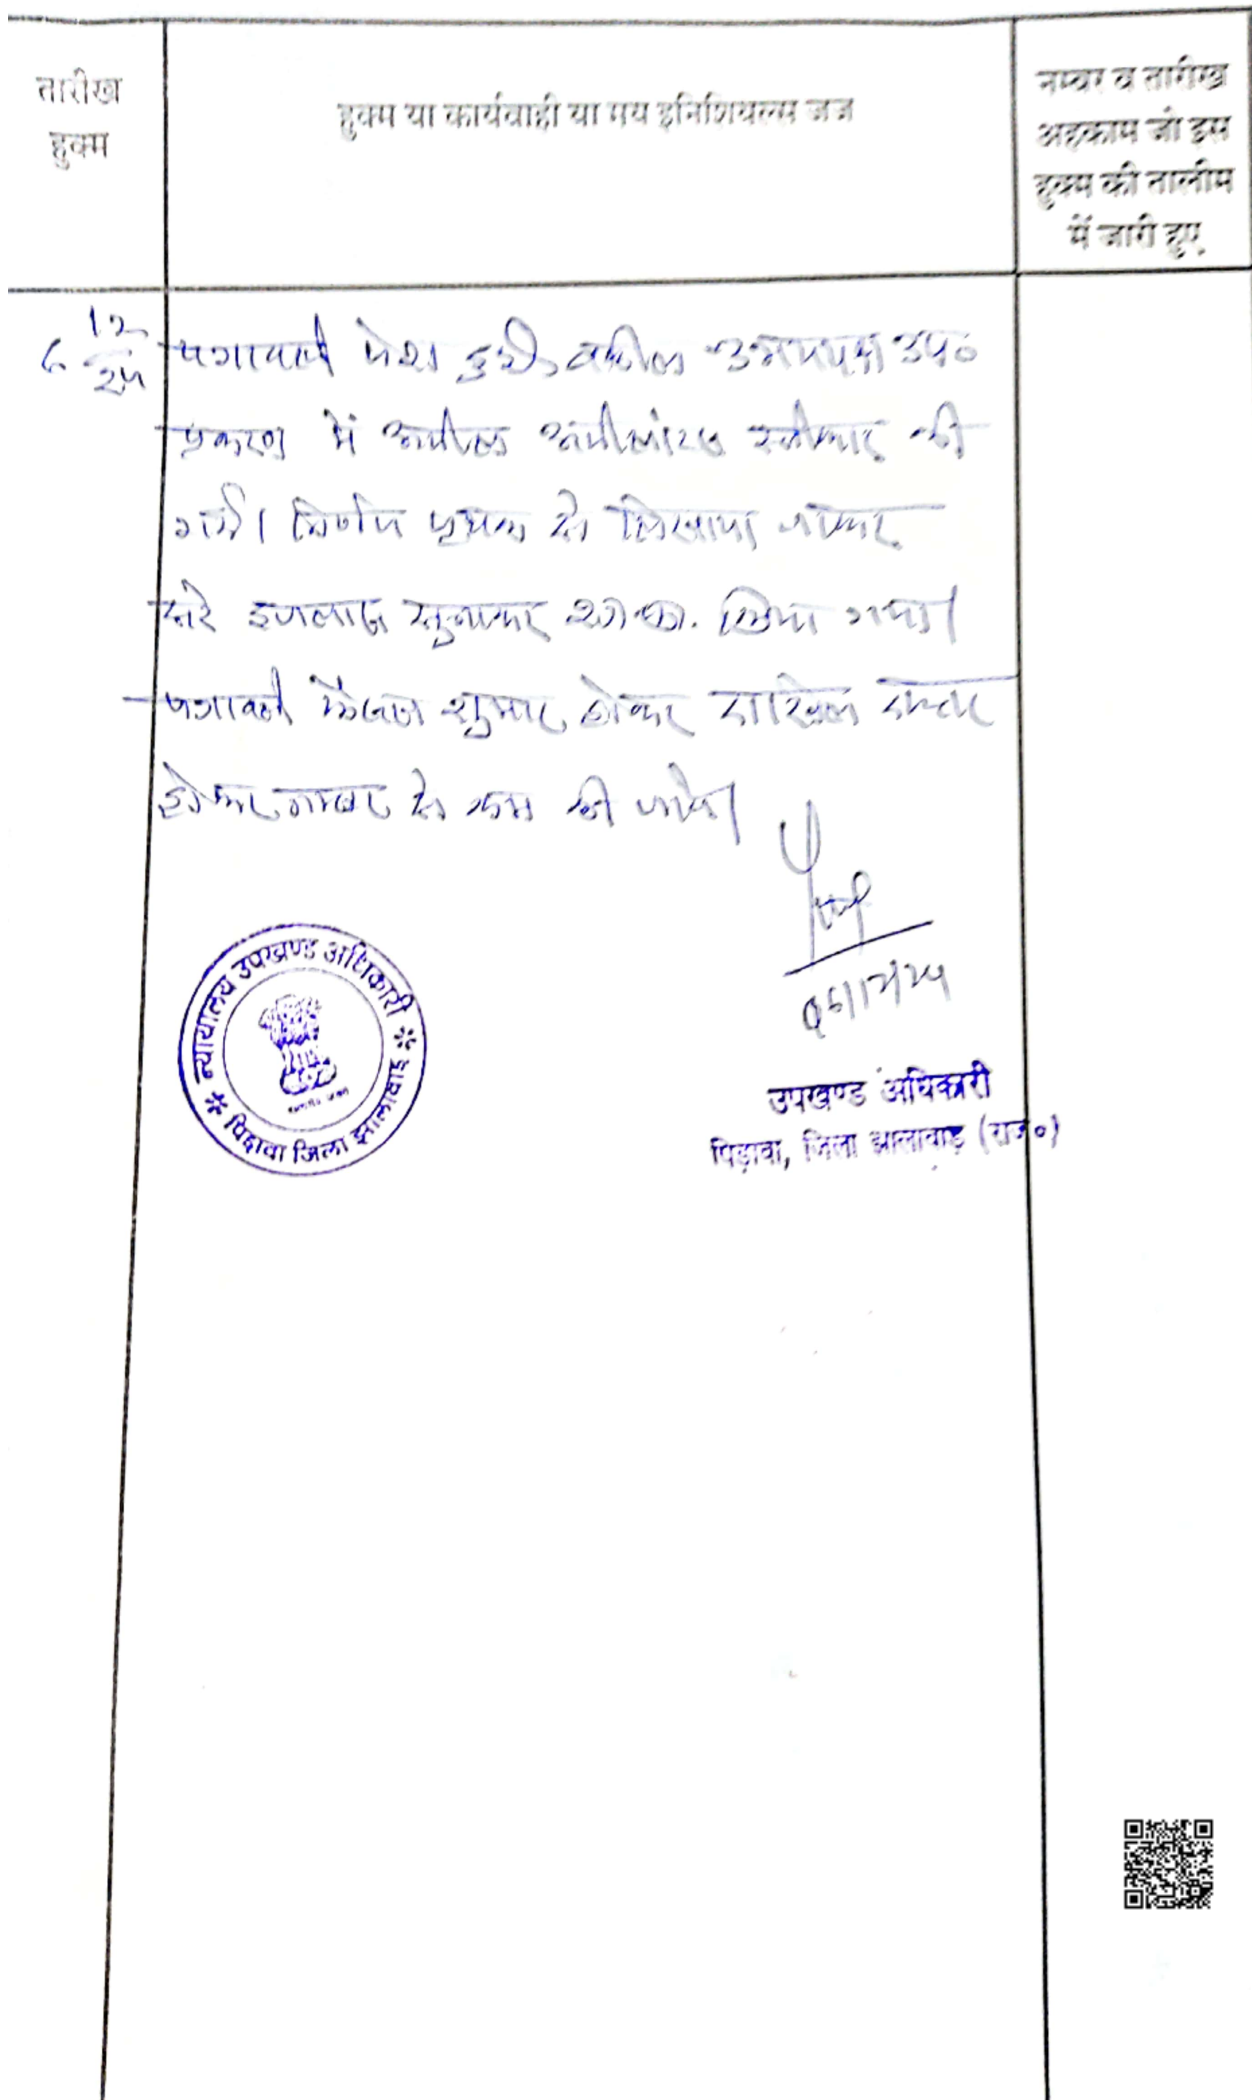 तारीख
हुक्म
हुक्म या कार्यवाही या मय इनिशियल्स जज
नम्बर व तारीख
अहकाम जो इस
हुक्म की तालीम
में जारी हुए
6 12
पत्रावली पेश हुयी, वकील उभयपक्ष उप०
प्रकरण में अपील अपीलांट्स स्वीकार की
गयी। निर्णय पृथक से लिखाया जाकर
सरे इजलास सुनाकर किया गया।
पत्रावली फैसल शुमार होकर दाखिल दफ्तर
होकर नम्बर से कम की जावे।
न्यायालय उपखण्ड अधिकारी
पिड़ावा जिला झालावाड़
उपखण्ड अधिकारी
पिड़ावा, जिला झालावाड़ (राज०)